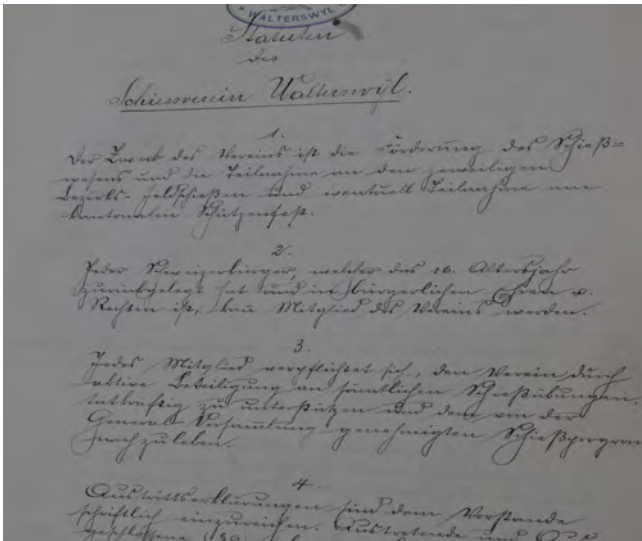 WALTERSWYL
Statuten
des
Schiessverein Walterswyl.
1.
Der Zweck des Vereins ist die Förderung des Schieß=
wesens und die Teilnahme an den jeweiligen
Bezirks-Feldschießen und eventuell Teilnahme am
Kantonalen Schützenfest.
2.
Jeder Schweizerbürger, welcher das 16. Altersjahr
zurückgelegt hat und in bürgerlichen Ehren u.
Rechten ist, kann Mitglied des Vereins werden.
3.
Jedes Mitglied verpflichtet sich, den Verein durch
aktive Beteiligung an sämtlichen Schießübungen,
tatkräftig zu unterstützen und dem von der
General-Versammlung genehmigten Schießprogram
nachzuleben.
4.
Austrittserklärungen sind dem Vorstande
schriftlich einzureichen. Austretende und
geschlossene